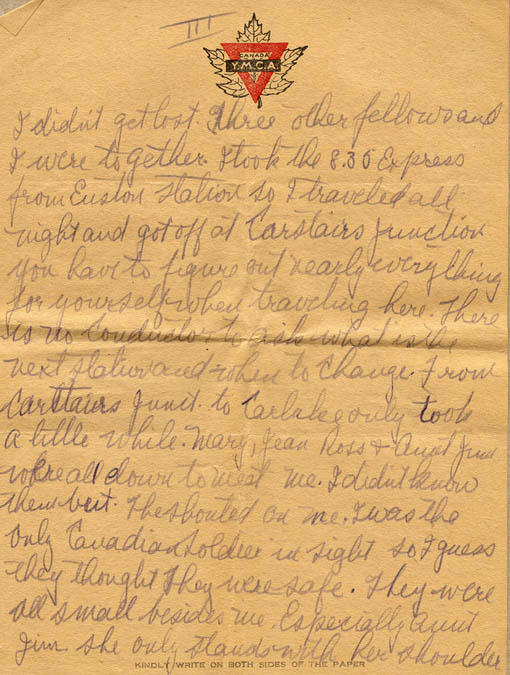 III
CANADA
Y.M.C.A.
I didn't get lost. Three other fellows and
I were together. I took the 8.30 Express
from Euston station so I traveled all
night and got off at Carstairs Junction
You have to figure out nearly everything
for yourself when traveling here. There
is no Conductor to ask what is the
next station and when to change. From
Carstairs Junct. to Carluke only took
a little while. Mary, Jean Ross & Aunt Jim
were all down to meet me. I didn't know
them but. The shouted on me. I was the
only Canadian soldier in sight so I guess
they thought they were safe. They were
all small besides me. Especially Aunt
Jim. she only stands with her shoulder
KINDLY WRITE ON BOTH SIDES OF THE PAPER